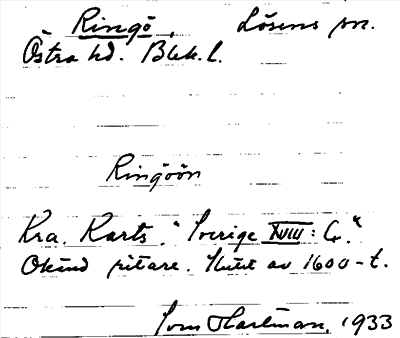 Ringö, Lösens sn.
Östra hd. Blek. l.
Ringöön
Kra. Karts. "Sverige XVIII: C."
Okänd ritare. Slutet av 1600-t.
Hartman, 1933